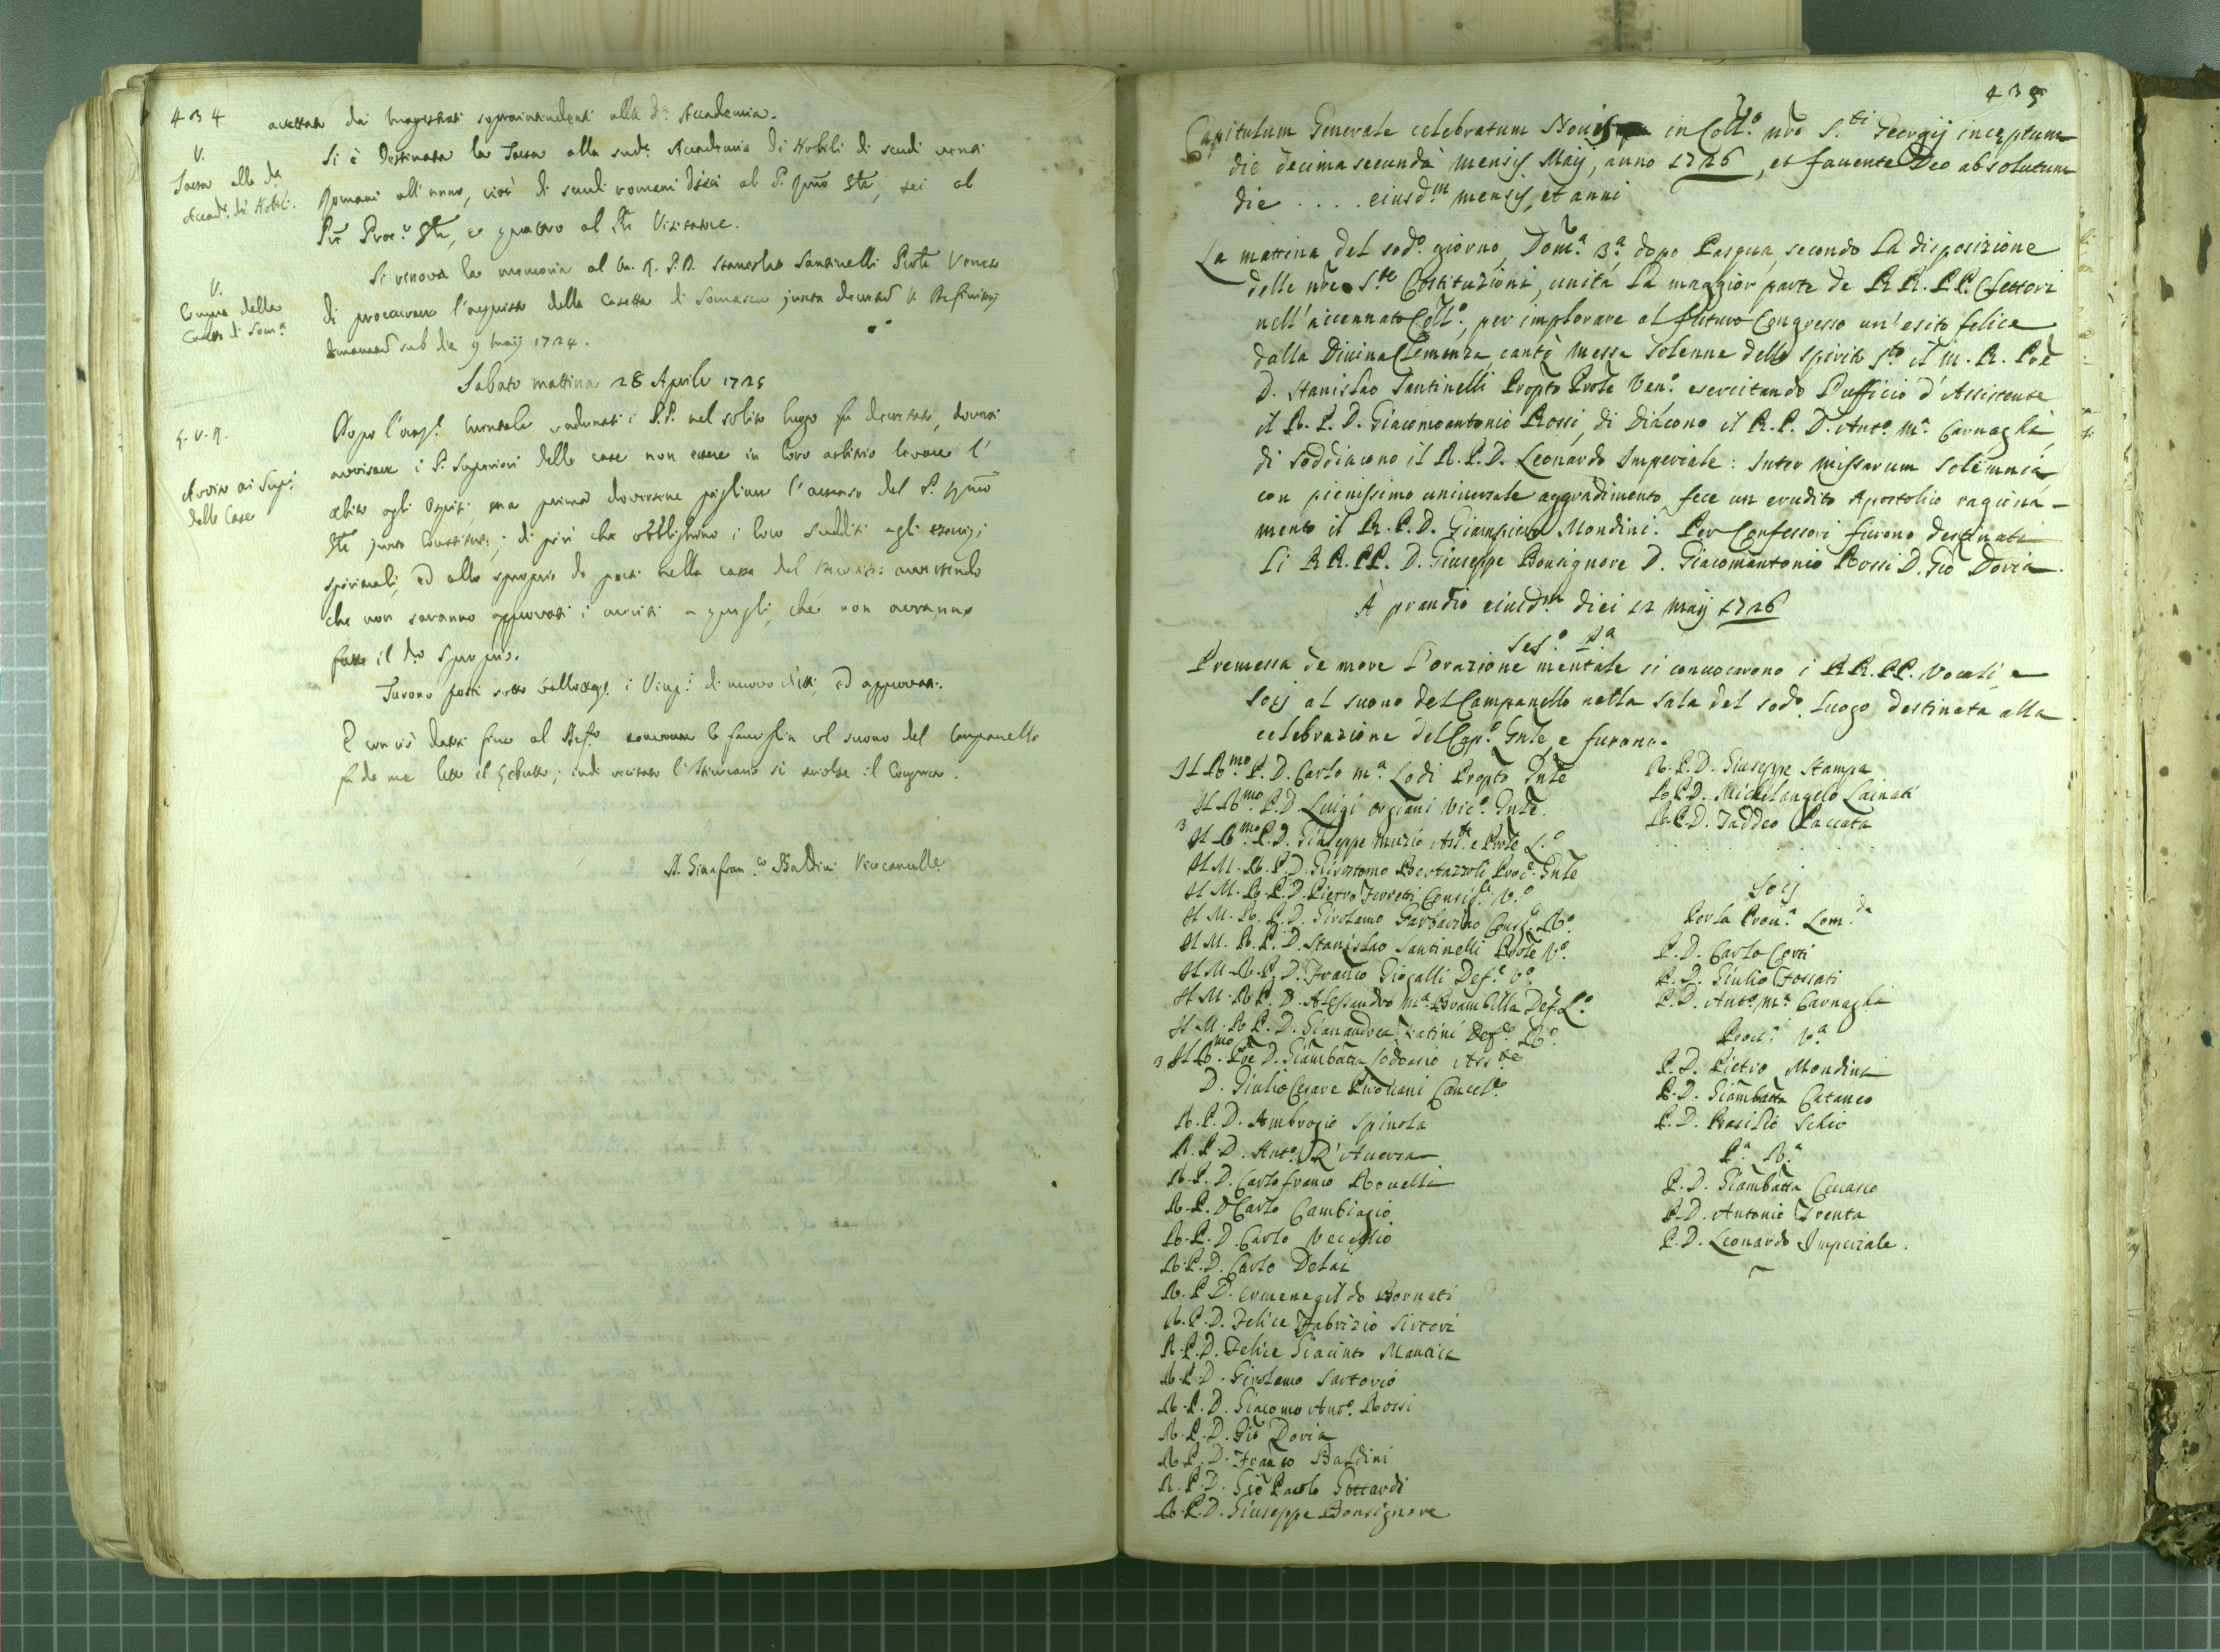 434
accettata dai Magistrati sopraintendenti alla d.ª Accademia.
V.
Tassa alla d.ª
Accad.ª di Nobili.
Si è destinata la Tassa alla sud.ª Accademia di Nobili di scudi venti
Romani all'anno, cioè di scudi romani dieci al P. Gñle, sei al
Proc.e Gñle, e quattro al Visitatore.
V.
Compra della
Casetta di Som.ª
Si rinova la memoria al M. R. P. D. Stanislao Santinelli Prõle Veneto
di procurare l'acquisto della Casetta di Somasca juxta
sub die 9 Maij 1724.
Sabato mattina 28 Aprile 1725
Avviso ai Sup.i
delle Case
Dopo l'oraz.e mentale radunati i P.P. nel solito luogo fu decretato, doversi
avvisare i P. Superiori delle case non essere in loro arbitrio levare l'
abito agli Ospiti, ma prima doversene pigliare l'assenso del P.
di più che obblighino i loro sudditi agli esercizj
spirituali, ed allo sproprio da porsi nella cassa del avvertendo
che non saranno approvati i a quegli, che non avranno
fatto il d.o sproprio.
Furono posti sotto ballottaz.e i di nuovo eletti, ed approvati.
E con ciò dassi fine al la famiglia col suono del Campanello
fu da me letto il indi recitato l'Itinerario si sciolse il Congresso.
D. Gianfran.co Baldini Vicecancell.e
435
Capitulum Generale celebratum in Coll.o nr̃o S.ti Georgij inceptum
die decima secunda mensis Maij, anno 1726, et favente Deo absolutum
die . . . . eiusd.m mensis, et anni
La mattina del sod.o giorno, Dom.a 3.a dopo Pasqua, secondo la disposizione
delle nr̃e S.te Costituzioni, unita la maggior parte de RR. PP. Elettori
nell'accennato Coll.o, per implorare al futuro Congresso un'esito felice
dalla Divina Clemenza, cantò Messa solenne dello Spirito S.to il M. R. Prẽ
D. Stanislao Santinelli Propto Prõle Ven.o esercitando l'ufficio d'Assistente
il R. P. D. Giacomoantonio Rossi, di Diacono il R. P. D. Ant.o M.a Carnaghi,
di soddiacono il R. P. D. Leonardo Imperiale: Inter Missarum solemnia
con pienissimo universale aggradimento fece un erudito Apostolico ragiona-
mento il R. P. D. Giampietro Mondini. Per Confessori furono destinati
li RR. PP. D. Giuseppe Bonsignore D. Giacomantonio Rossi D. Gio Doria.
À prandio eiusd.m diei 12 Maij 1726
Ses.o 1.a
Premessa de more l'orazione mentale si convocarono i RR. PP. Vocali, e
Socij al suono del Campanello nella sala del sod.o luogo destinata alla
celebrazione del Cap.o Gñle, e furono.
Il R.mo P. D. Carlo M.a Lodi Propto Gñle
Il R.mo P. D. Luigi Vic.o Gñle
3 Il R.mo P. D. Giuseppe Muzio Ass.te e Prõle L.o
Il M. R. P. D. Grisostomo Bertazzoli Proc.e Gñle
Il M. R. P. D. Pietro Ferretti Consig.e V.o
Il M. R. P. D. Girolamo Garbarino Cons.e R.o
Il M. R. P. D. Stanislao Santinelli Prõle V.o
Il M. R. P. D. Franco Giogalli Def.e V.o
Il M. R. P. D. Alessandro M.a Brambilla Def. L.o
Il M. R. P. D. Gianandrea Def.e R.o
3 Il R.mo Prẽ D. Giambatta Ass.te
D. Giulio Cesare Cancel.o
R. P. D. Ambrogio Spinola
R. P. D. Ant.o D'Aversa
R. P. D. Carlofranco Rovelli
R. P. D. Carlo Cambiagio
R. P. D. Carlo Veceglio
R. P. D. Carlo Delai
R. P. D. Ermenegildo Bornati
R. P. D. Felice Fabrizio Sirtori
R. P. D. Felice Giacinto Mantica
R. P. D. Girolamo Sartorio
R. P. D. Giacomo Ant.o Rossi
R. P. D. Gio Doria
R. P. D. Franco Baldini
R. P. D. Gio Paolo Gottardi
R. P. D. Giuseppe Bonsignore
R. P. D. Giuseppe Stampa
R. P. D. Michelangelo Lainati
R. P. D. Taddeo Paccata
Socij
Per la Prou.a Lom.da
P. D. Carlo Corti
P. D. Giulio Fossati
P. D. Ant.o M.a Carnaghi
Prou.a V.a
P. D. Pietro Mondini
P. D. Giambatta Cataneo
P. D. Basilio Schio
P.a R.a
P. D. Giambatta Cevasco
P. D. Antonio Trenta
P. D. Leonardo Imperiale.